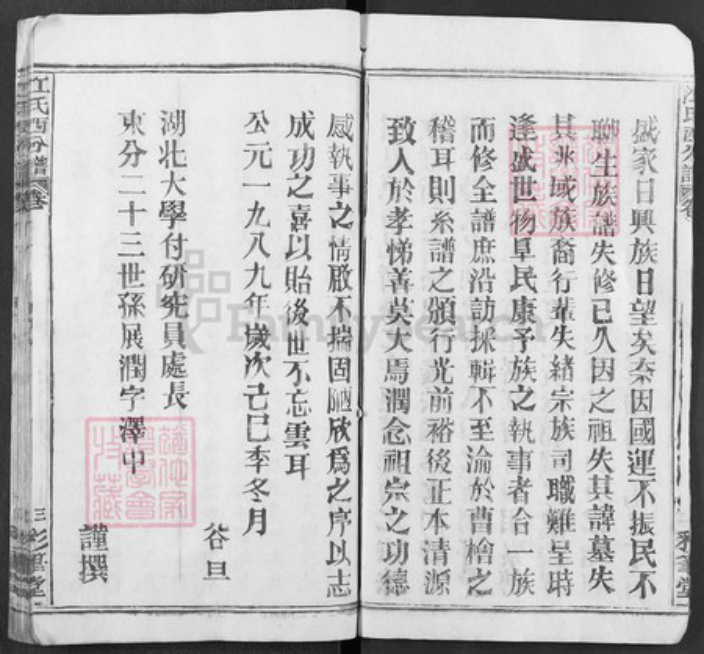 盛家日興族日望矣奈因國運不振民不
聊生族譜失修已久因之祖失其諱墓失
其兆域族裔行輩失緒宗族司職難呈時
逢盛世物阜民康予族之執事者合一族
而修全譜庶沿訪採輯不至淪於曹檜之
稽耳則系譜之頒行光前裕後正本清源
致人於孝悌善莫大焉潤念祖宗之功德
感執事之情啟不揣固陋欣為之序以志
成功之喜以貽後世不忘雲耳
公元一九八九年歲次己巳季冬月
谷旦
湖北大學付研究員處長
東分二十三世孫展潤字澤中
謹撰
江氏西分譜
卷
三
彩筆堂
FamilySearch